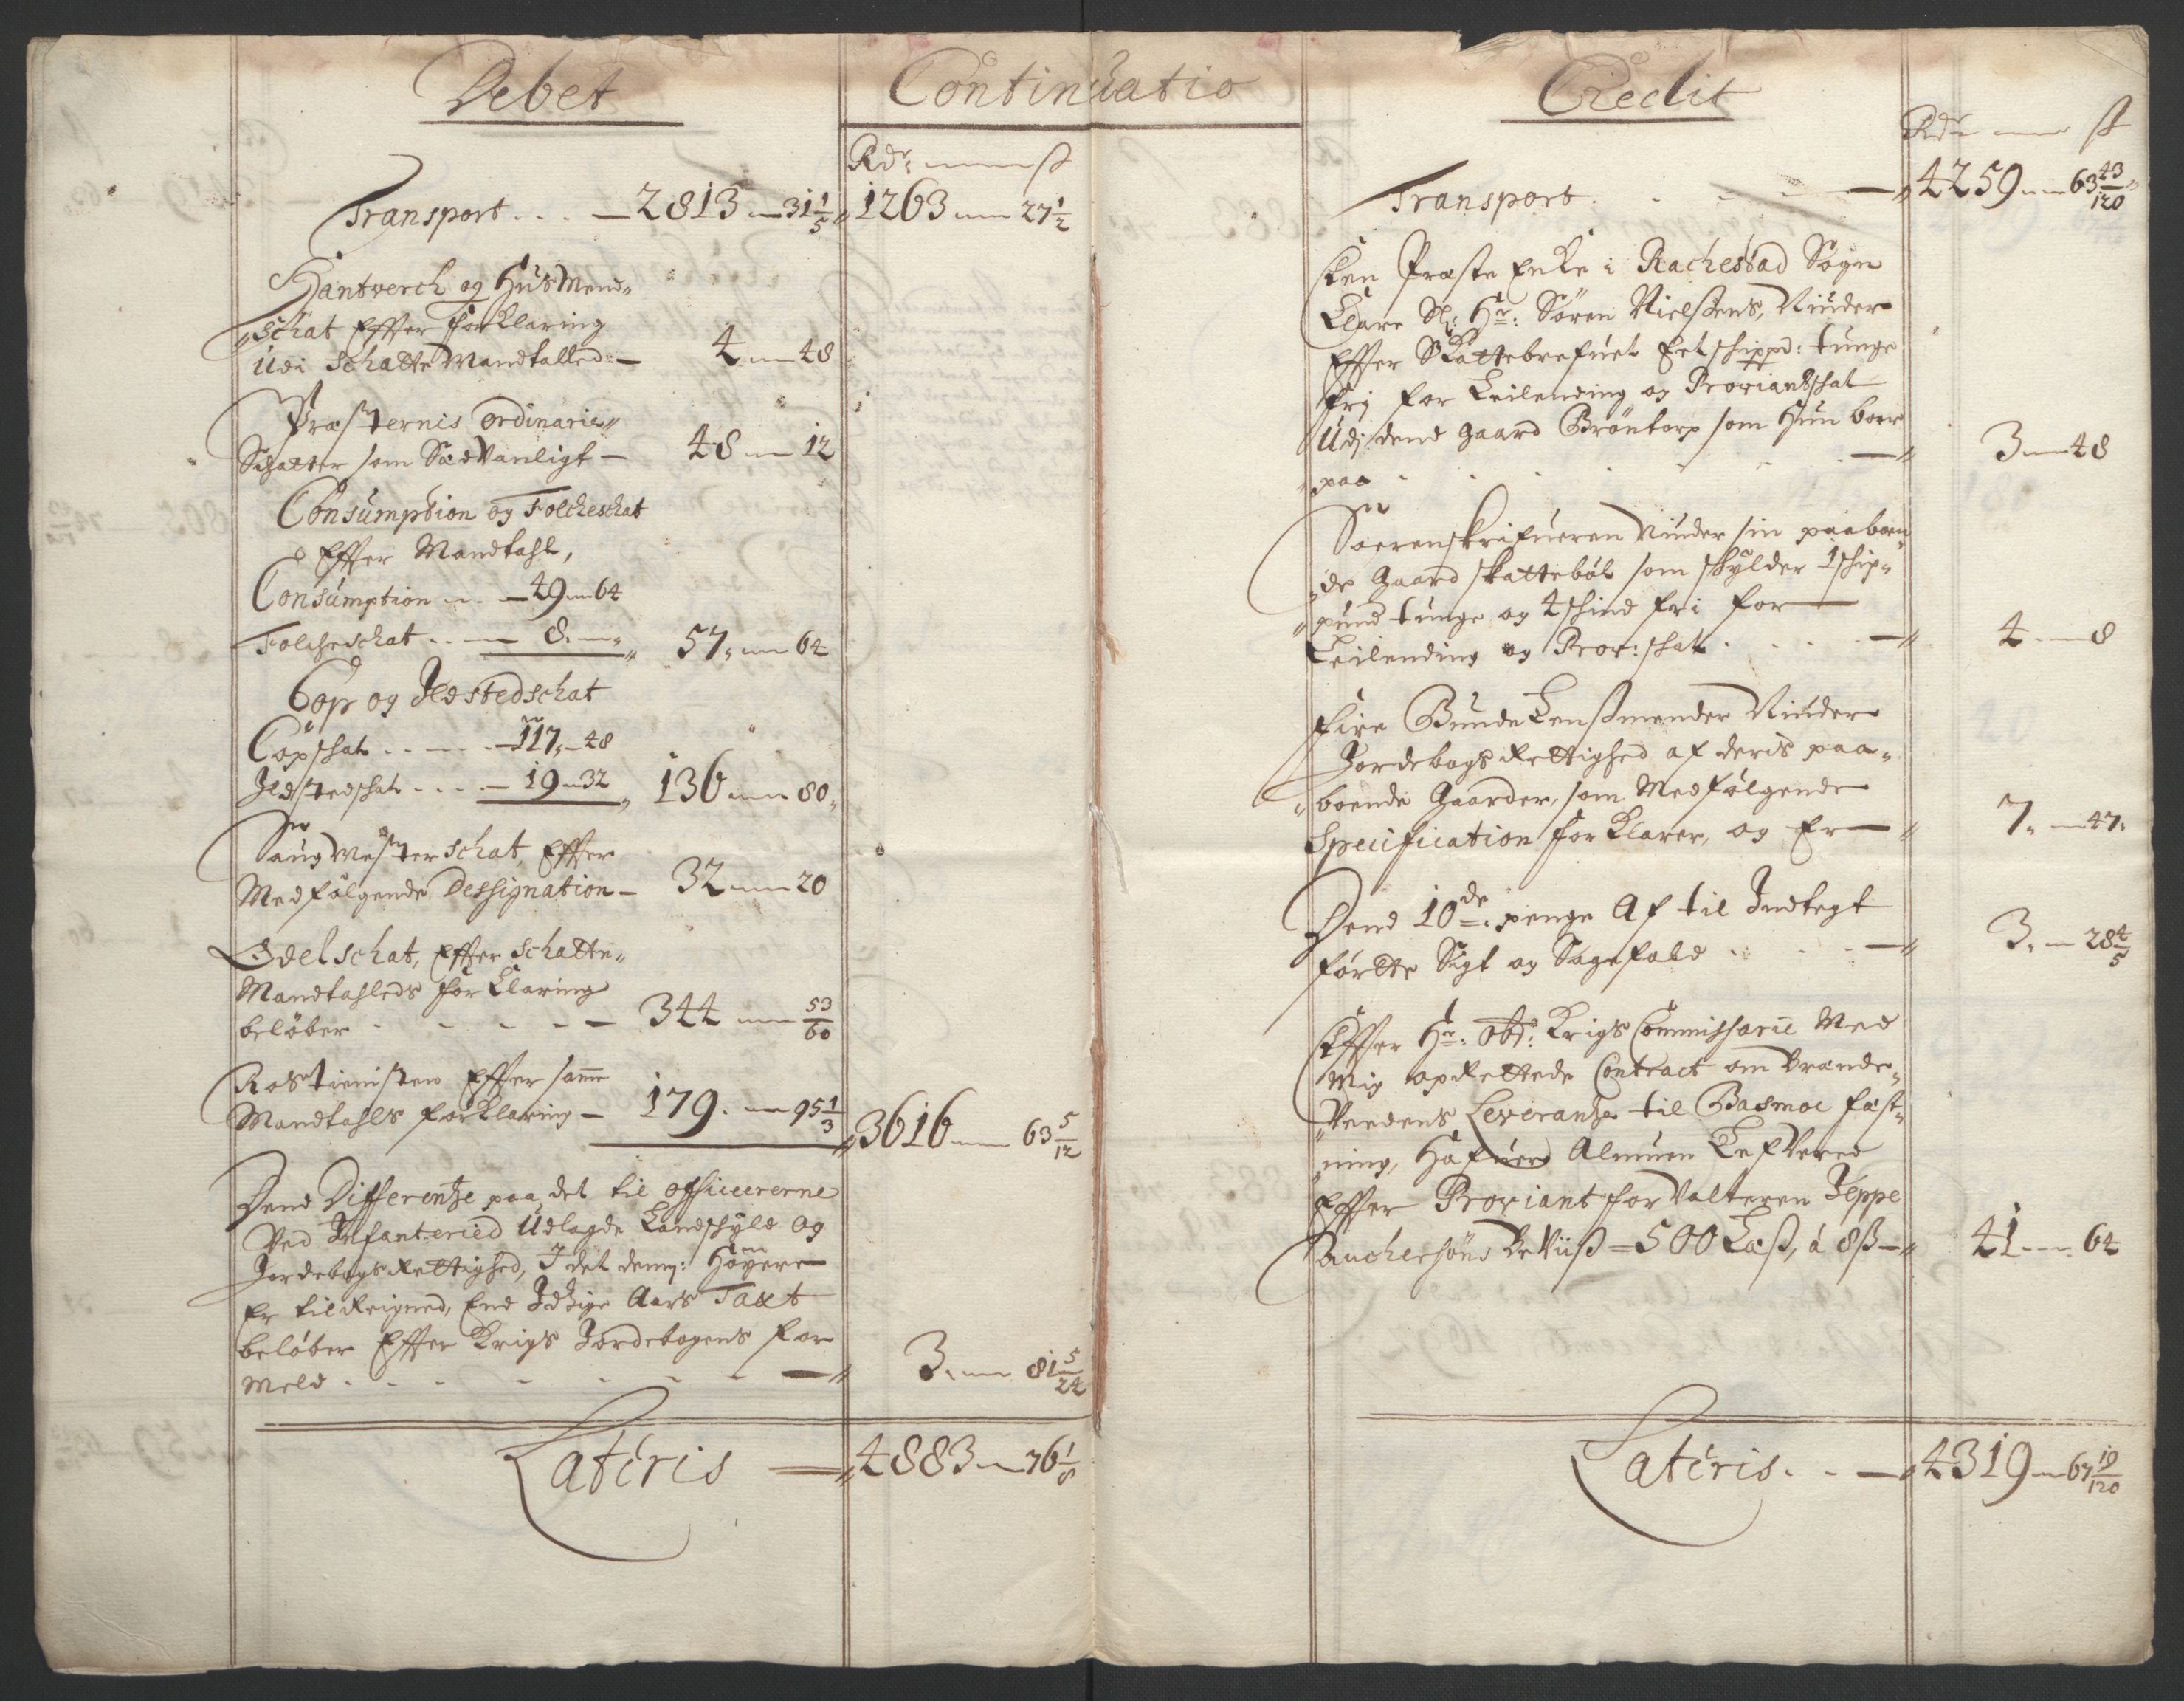 Debet
Continuatio
Rdr ß
Transport . . . — 2813 — 31 1/5 „ 1263 — 27 1/2
Hantverch og HusMend„
„schat Effter Forklaring
Udi SchatteMandtalled: — 4 — 48
Præsternis ordinarie„
Schatter som Sædvanligt — 48 — 12
Consumption og Folcheschat
Effter Mandtahl,
Consumption — 49 — 64
Folcheschat . . — 8. — „ 57 „ — 64
Cop og Ildstedschat
Copschat . . . . — 117 „ — 48
Ildstedschat . . . . — 19 — 32 „ 136 — 80 „
Saugmesterschat, Effter
Medfølgende Dessignation — 32 — 20
Odelschat, Effter Schatte„
Mandtahleds Forklaring
beløber - - - - — 344 — 53/60
Rostienisten Effter samme
Mandtahls forklaring — 179. — 95 1/3 „ 3616 — 63 5/12
Dend Differentze paa det til officiererne
Ved Infanteried Udlagde Landschyld og
Jordebogs Rettighed, I det dem: Høyere
Er tilReigned, End Idtzige Aars Taxt
beløber Effter Krigs Jordebogens for
Meld . - - - - - — „ 3. — 81 5/24
Lateris — „ 4883 — 76 1/8
Credit
Rdr ß
Transport . . - - — „ 4259 — 63 43/120 „
Een Præste Enke i Rachestad Sogn
Clare Sl: Hr: Sören Nielßens, Niuder
Effter Skattebrefuet Eet schippd: tunge
frj for Leilending og Proviantschat
Udj dend gaard Bröntorp som Hun boer
„ paa . . . . . — „ 3 — 48
Sorenskrifueren Niuder sin paaboen
„de Gaard skattebøl som skylder 1 schip„
„ pund tunge og 4 schind fri for —
Leilending og Prov: schat . . . — „ 4 — 8
Fire BundeLensmender Niuder
Jordebogs Rettighed af deris paa„
„ boende Gaarder, som Medfølgende
Specification Forklarer, og Er — „ 7. — 47.
Dend 10de: penge Af til Indtegt
førtte Sigt og Sagefald . . - — „ 3. — 28 4/5
Effter Hr: Obr: Krigs Commissarie Med
Mig opRettede Contract om Brænde„
„Veedens Leverantze til Basmoe fæst„
„ning, Hafuer Almuen Lefvered
Effter Proviantforvalteren Jeppe
Sauchersöns Beviis = 500 Læß, á 8ß — „ 41 — 64
Lateris. - - — „ 4319 — 67 19/120